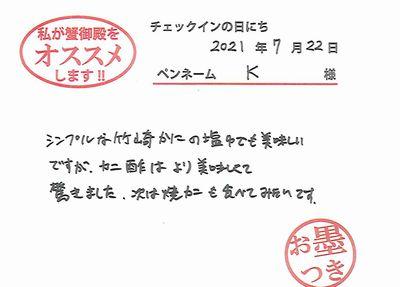 私が蟹御殿を
オススメ
します!!
チェックインの日にち
2021 年 7 月 22 日
ペンネーム K 様
シンプルな竹崎かにの塩ゆでも美味しい
ですが、カニ酢はより美味しくて
驚きました、次は焼カニも食べてみたいです。
お墨
つき